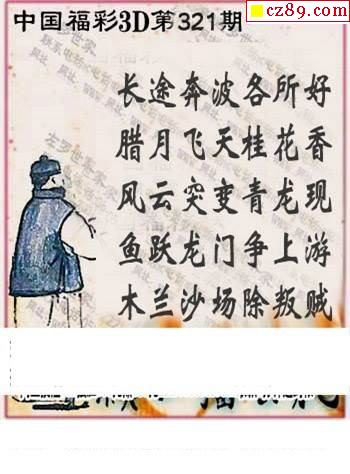 cz89.com
中国福彩3D第321期
长途奔波各所好
腊月飞天桂花香
风云突变青龙现
鱼跃龙门争上游
木兰沙场除叛贼